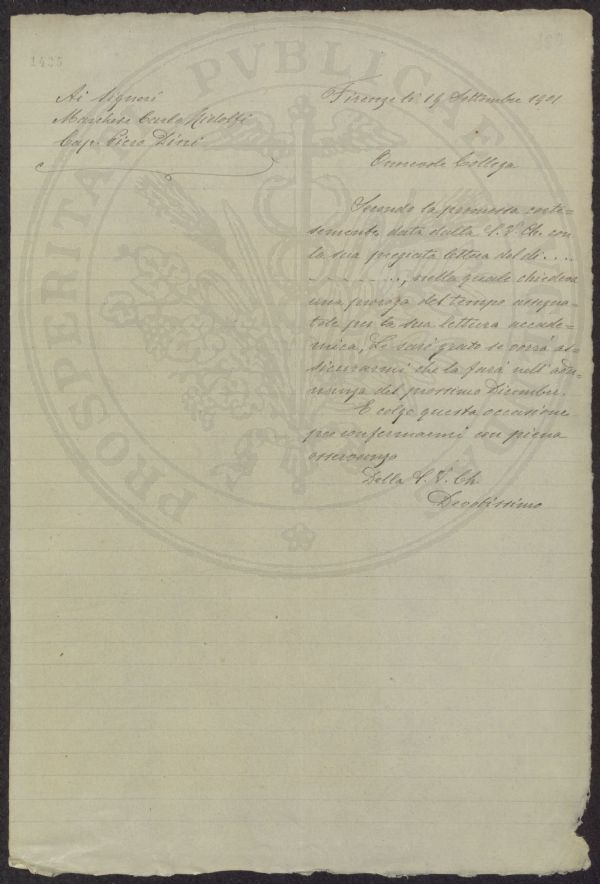 1435
Ai Signori
Marchese Carlo Ridolfi
Cap. Piero Dini
Firenze lì 19 Settembre 1901
Onorevole Collega
Secondo la promessa corte=
semente data dalla S. V. Ch. con
la sua pregiata lettera del dì . . . .
. . . . . . . ., nella quale chiedeva
una proroga del tempo assegna=
tole per la sua lettura accade=
mica, Le sarò grato se vorrà as=
sicurarmi che la farà nell'adu=
nanza del prossimo Dicembre.
E colgo questa occasione
per confermarmi con piena
osservanza
Della S. V. Ch.
Devotissimo
PROSPERITATI PVBLICAE